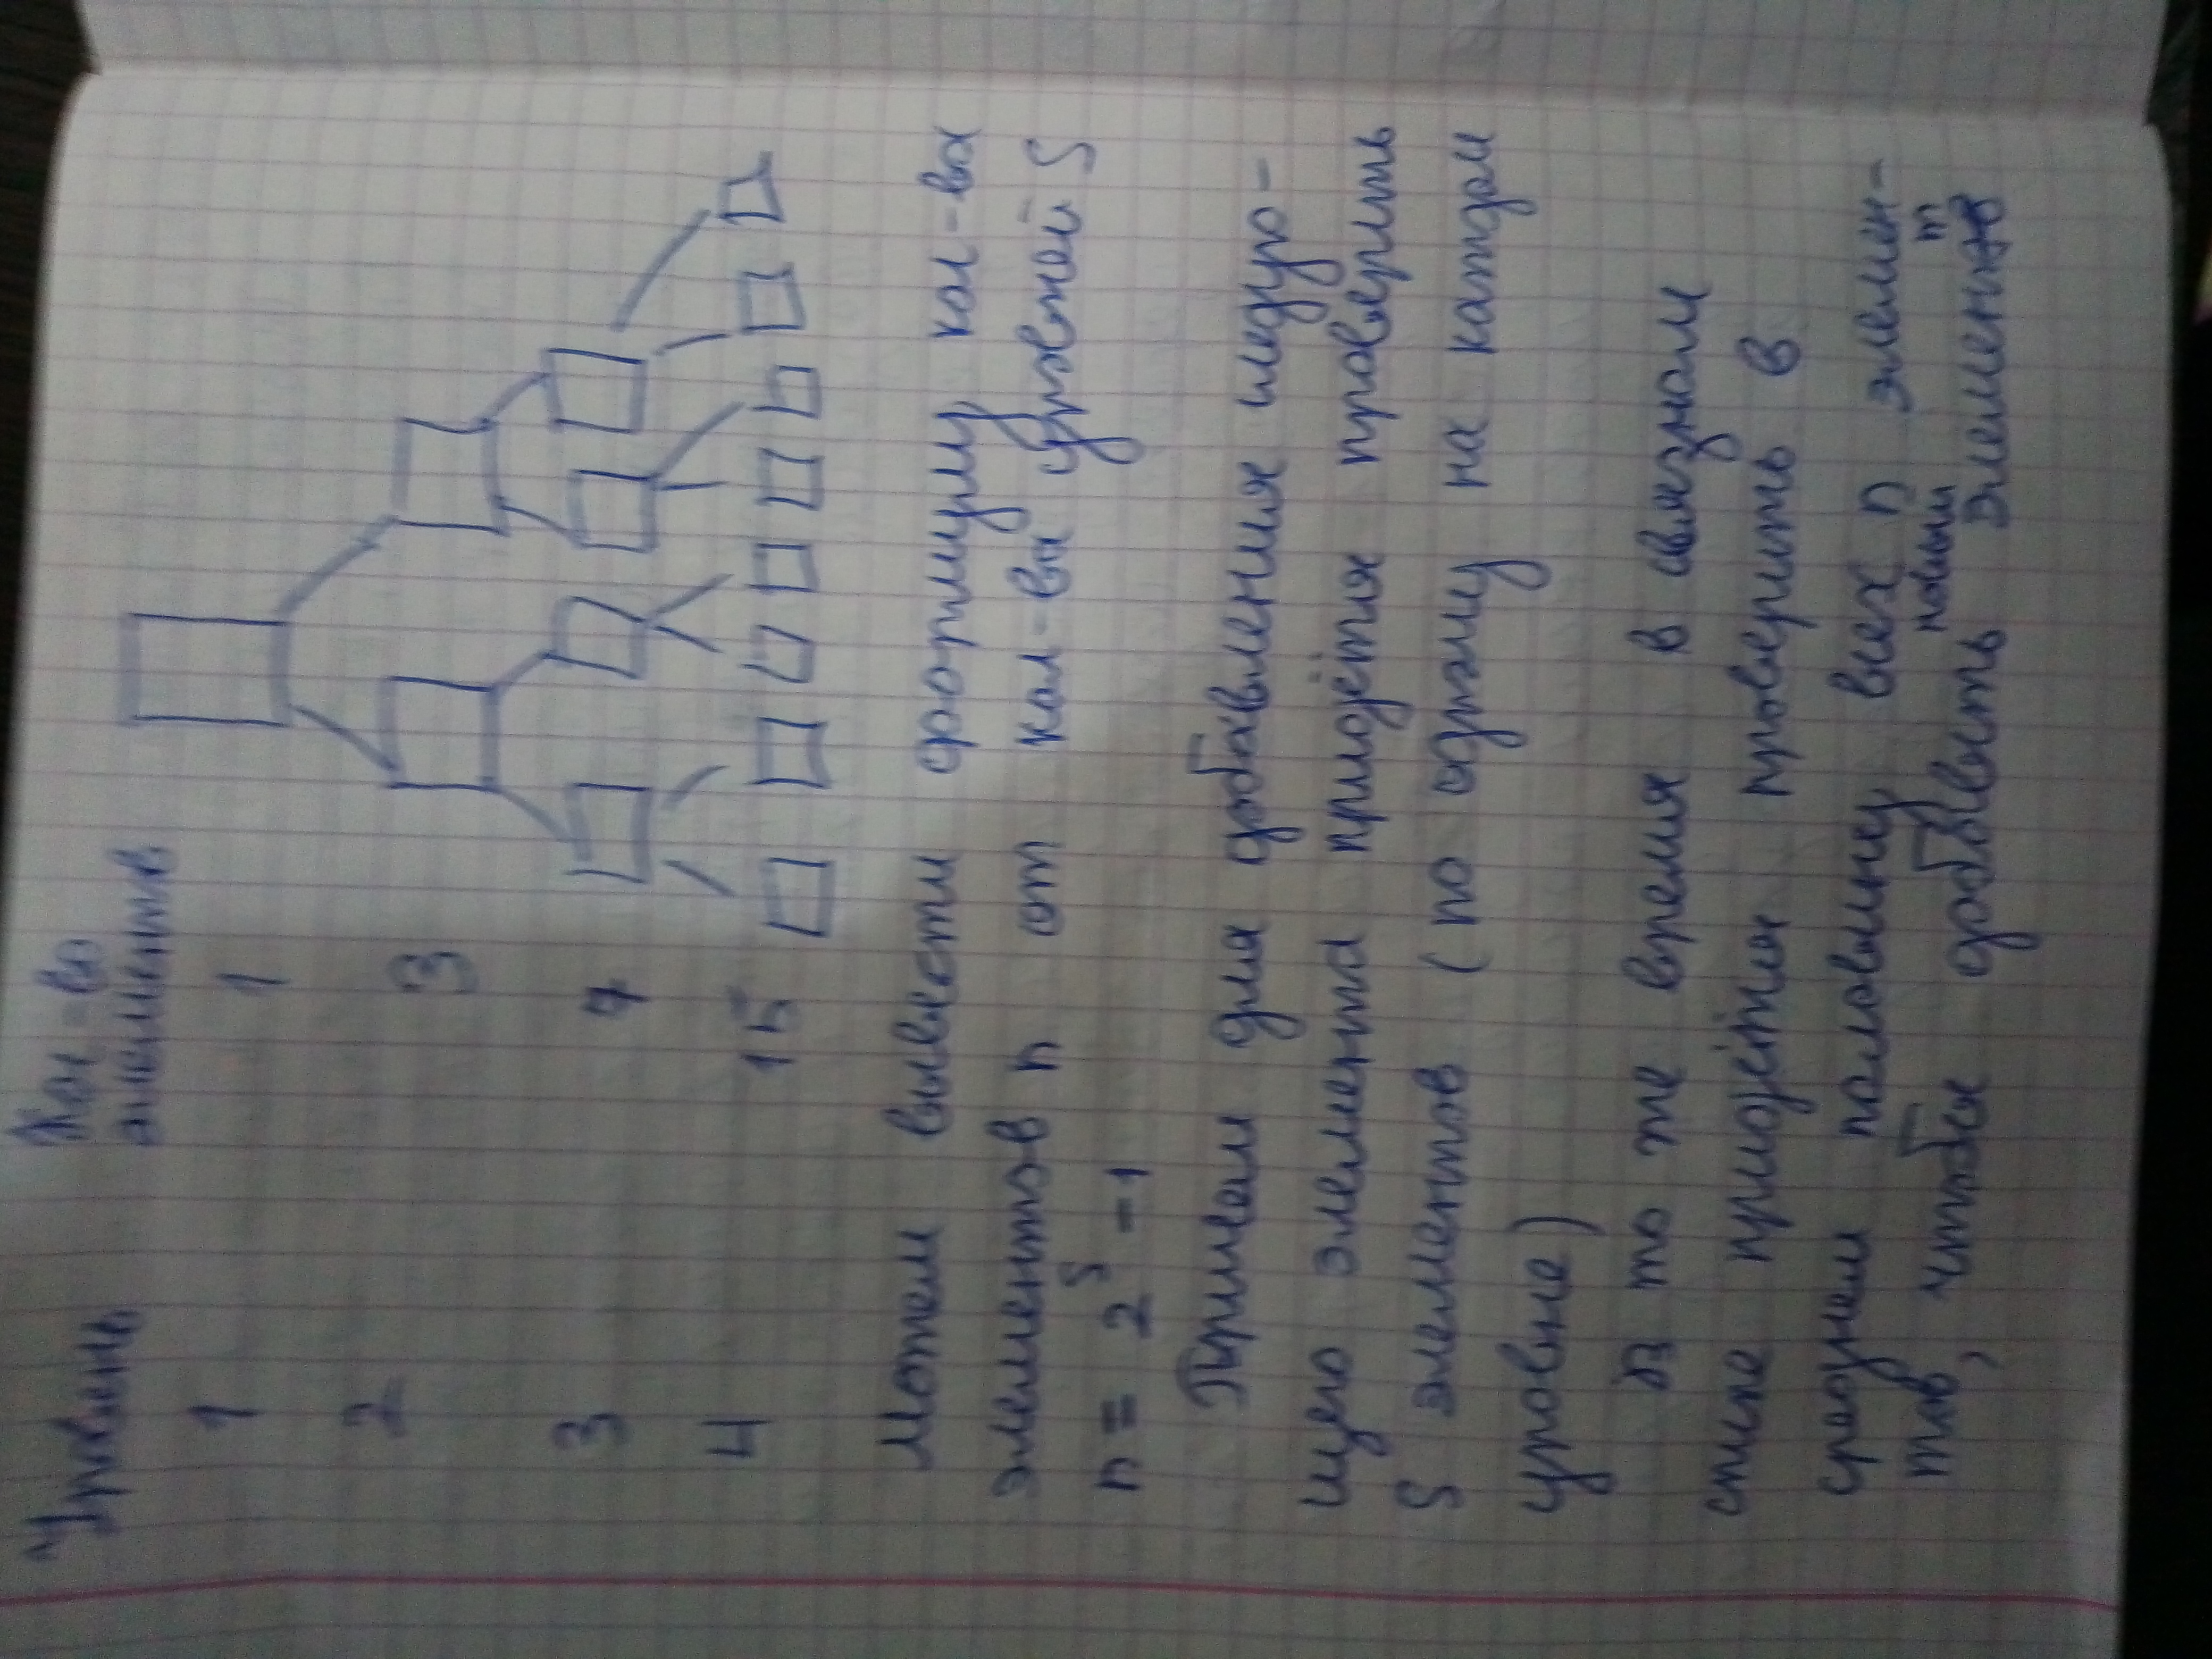 Уровень Кол-во
элементов
1 1
2 3
3 7
4 15
Можем вывести формулу кол-ва
элементов n от кол-ва уровней S
n = 2^S - 1
Причем для добавления следую-
щего элемента придётся проверить
S элементов (по одному на каждом
уровне)
В то же время в связном
списке придётся проверить в
среднем половину всех n элемен-
тов, чтобы добавить новый элемент